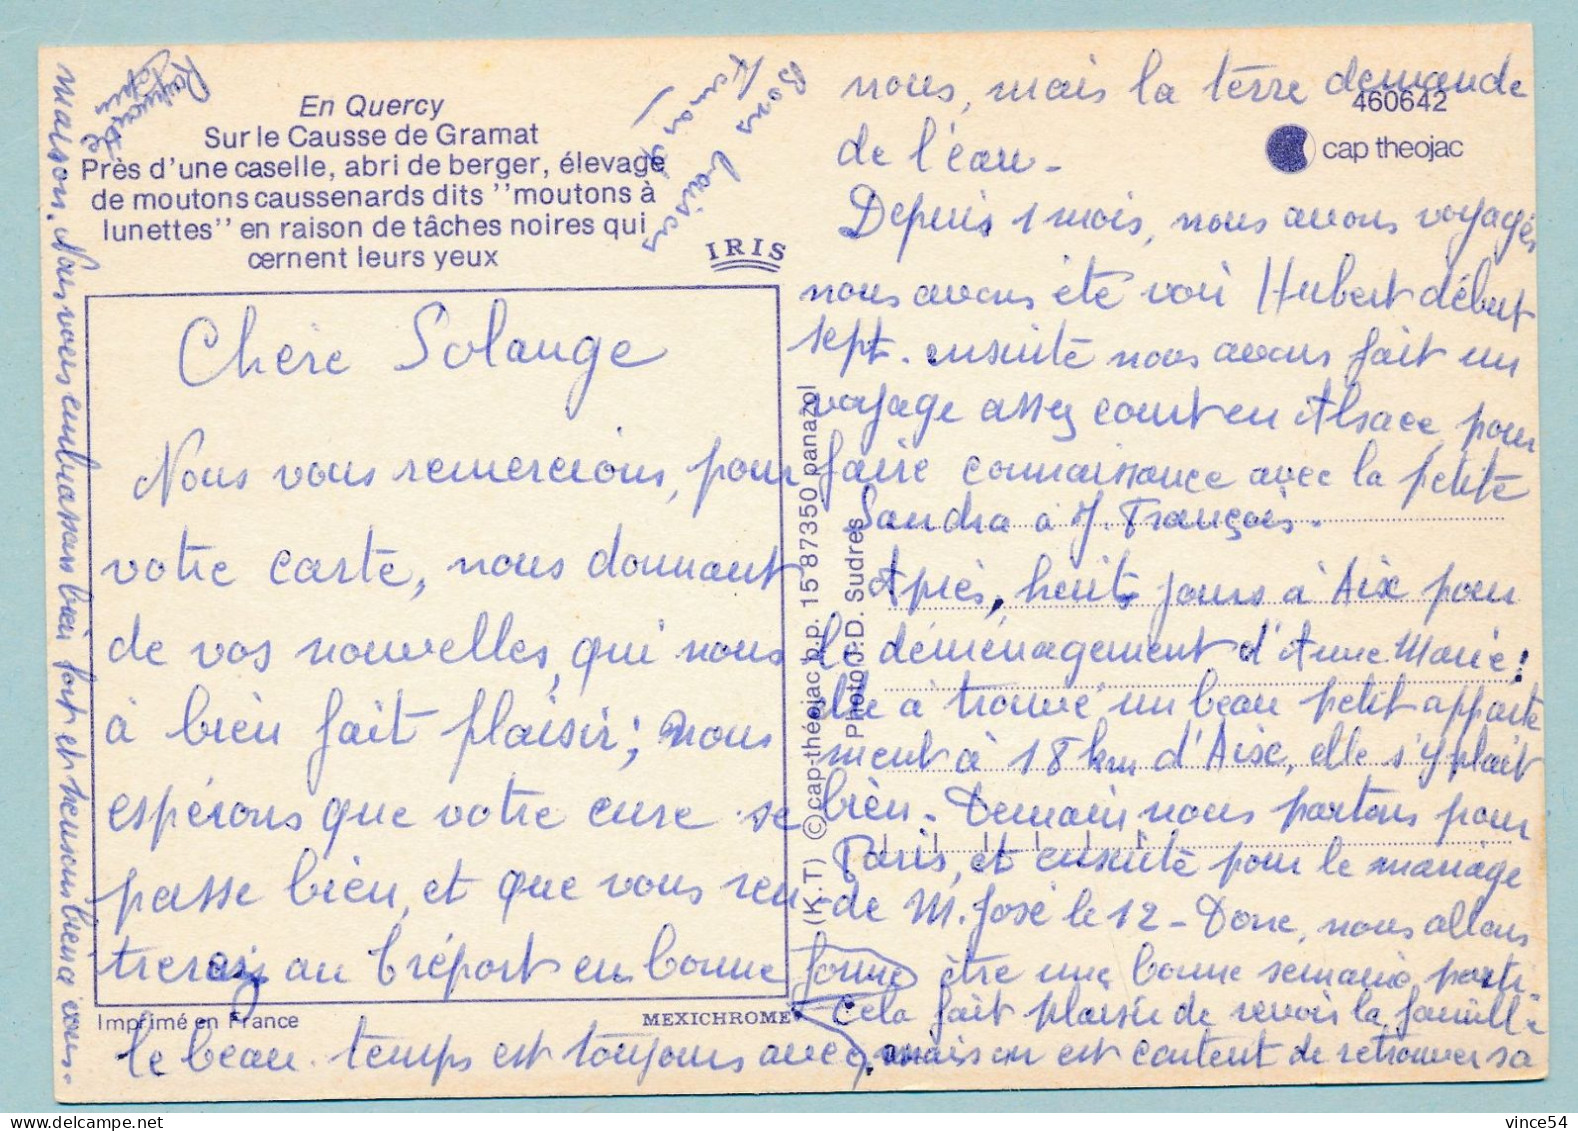 En Quercy
Sur le Causse de Gramat
Près d'une caselle, abri de berger, élevage
de moutons caussenards dits ''moutons à
lunettes'' en raison de tâches noires qui
cernent leurs yeux
IRIS
460642
cap theojac
Chère Solange
Nous vous remercions, pour
votre carte, nous donnant
de vos nouvelles, qui nous
à bien fait plaisir; nous
espérons que votre cure se
passe bien, et que vous ren-
trerez au bréport en bonne forme
le beau temps est toujours avec
nous, mais la terre demande
de l'eau -
Depuis 1 mois, nous avons voyagés
nous avons été voir Hubert début
sept. ensuite nous avons fait un
voyage assez court en Alsace, pour
faire connaissance avec la petite
Sandra à J. François.
Après, huit jours à Aix pour
le déménagement d'Anne Marie;
elle à trouvé un beau petit apparte
ment à 18 km d'Aix, elle s'y plait
bien. Demain nous partons pour
Paris, et ensuite pour le mariage
de M. José le 12 - Donc, nous allons
être une bonne semaine partis.
Cela fait plaisir de revoir la famille
mais on est content de retrouver sa
maison. Nous vous embrassons bien fort et heureux bien à vous.
Raymonde
Bons baisers
(K.T) © cap-théojac b.p. 15 87350 panazol
Photo J.D. Sudres
Imprimé en France
MEXICHROME
vince54